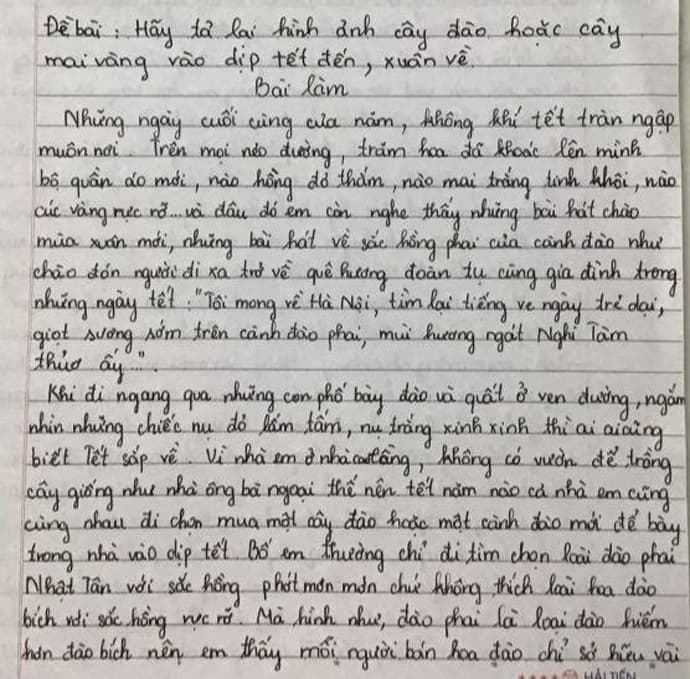 Đề bài: Hãy tả lại hình ảnh cây đào hoặc cây
mai vàng vào dịp tết đến, xuân về.
Bài làm
Những ngày cuối cùng của năm, không khí tết tràn ngập
muôn nơi. Trên mọi nẻo đường, trăm hoa đã khoác lên mình
bộ quần áo mới, nào hồng đỏ thắm, nào mai trắng tinh khôi, nào
cúc vàng rực rỡ...và đâu đó em còn nghe thấy những bài hát chào
mùa xuân mới, những bài hát về sắc hồng phai của cành đào như
chào đón người đi xa trở về quê hương đoàn tụ cùng gia đình trong
những ngày tết: "Tôi mong về Hà Nội, tìm lại tiếng ve ngày trẻ dại,
giọt sương sớm trên cành đào phai, mùi hương ngát Nghi Tàm
thuở ấy...".
Khi đi ngang qua những con phố bày đào và quất ở ven đường, ngắm
nhìn những chiếc nụ đỏ lấm tấm, nụ trắng xinh xinh thì ai ai cũng
biết Tết sắp về. Vì nhà em ở nhà cao tầng, không có vườn để trồng
cây giống như nhà ông bà ngoại thế nên tết năm nào cả nhà em cũng
cùng nhau đi chọn mua một cây đào hoặc một cành đào mới để bày
trong nhà vào dịp tết. Bố em thường chỉ đi tìm chọn loài đào phai
Nhật Tân với sắc hồng phớt mơn mởn chứ không thích loài hoa đào
bích với sắc hồng rực rỡ. Mà hình như, đào phai là loại đào hiếm
hơn đào bích nên em thấy mỗi người bán hoa đào chỉ sở hữu vài
HẢI TIẾN